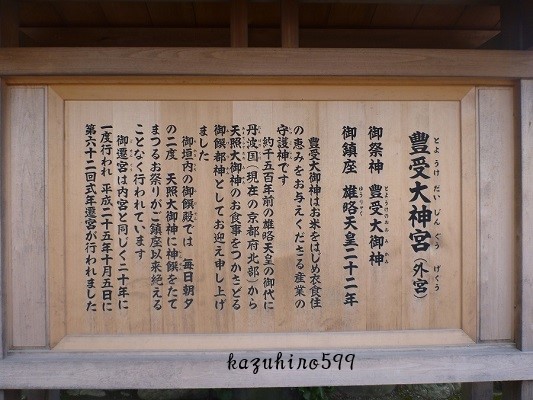 豊受大神宮（外宮）
とようけだいじんぐう げくう
御祭神 豊受大御神
とようけのおおみかみ
御鎮座 雄略天皇二十二年
ゆうりゃく
豊受大御神はお米をはじめ衣食住
の恵みをお与えくださる産業の
守護神です
約千五百年前の雄略天皇の御代に
丹波国（現在の京都府北部）から
天照大御神のお食事をつかさどる
御饌都神としてお迎え申し上げ
ました
御垣内の御饌殿では 毎日朝夕
の二度 天照大御神に神饌をたて
まつるお祭りがご鎮座以来絶える
ことなく行われています
御遷宮は内宮と同じく二十年に
一度行われ 平成二十五年十月五日に
第六十二回式年遷宮が行われました
kazuhiro599